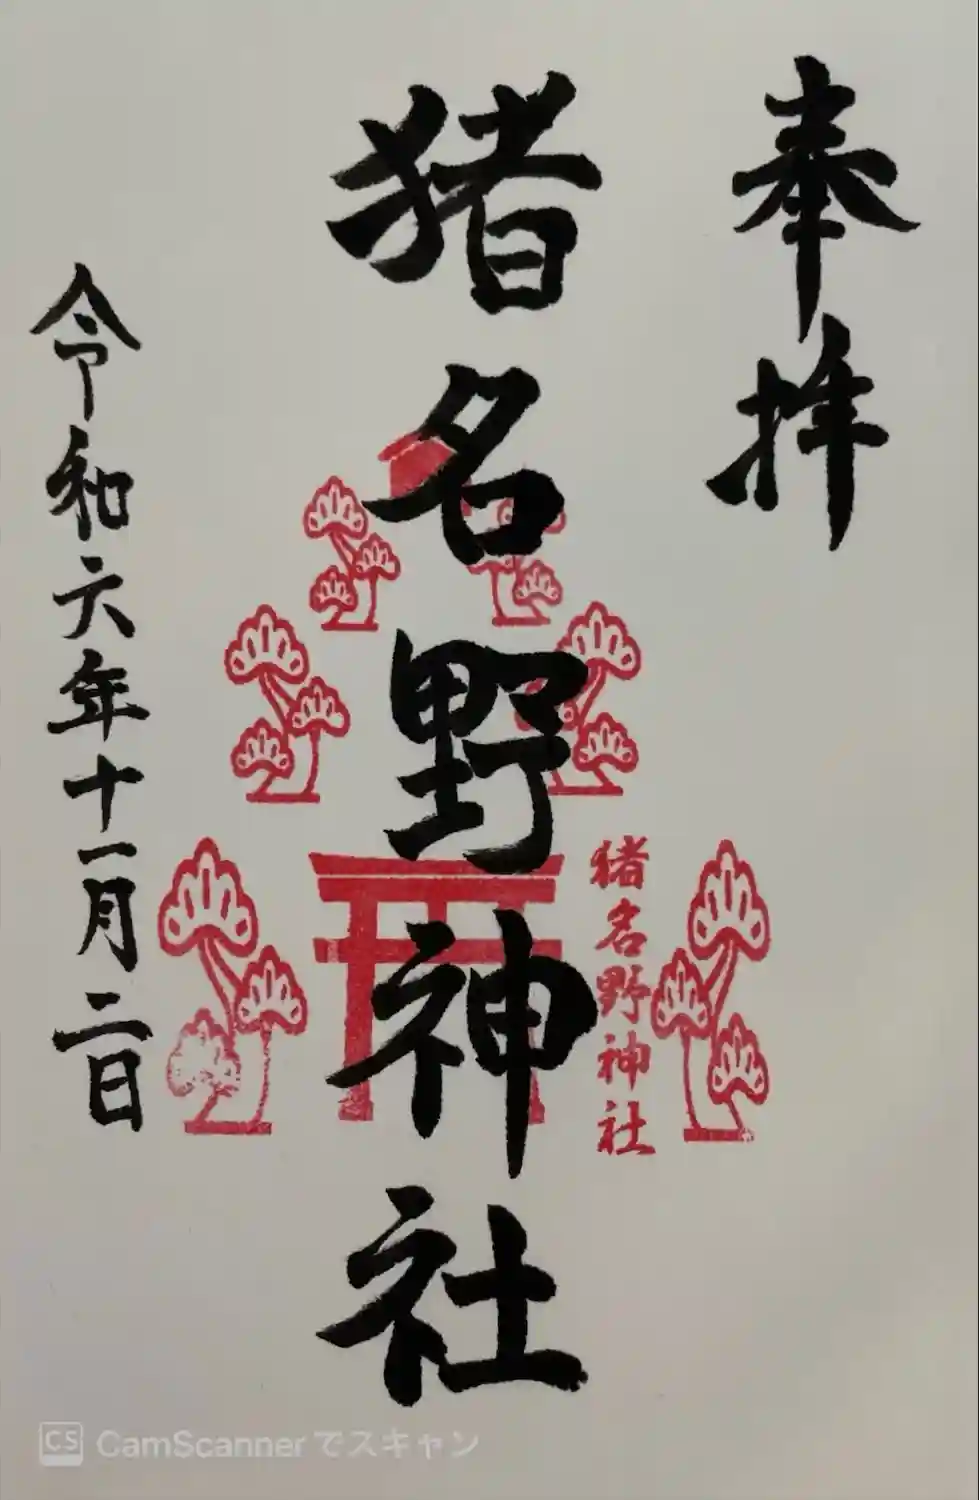 奉拝
猪名野神社
猪名野神社
令和六年十一月二日
CS CamScannerでスキャン